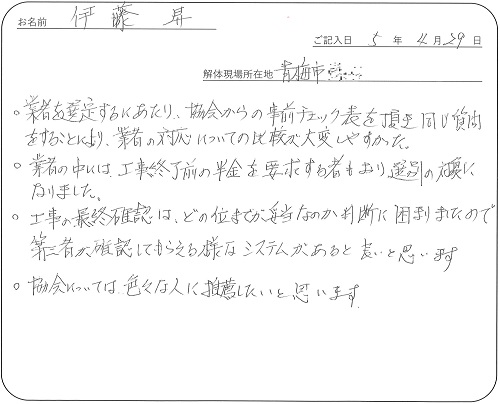 お名前 伊藤 昇
ご記入日 5 年 4 月 29 日
解体現場所在地 青梅市
○ 業者を選定するにあたり、協会からの事前チェック表を頂き同じ質問
をすることにより、業者の対応についての比較が大変しやすかった。
○ 業者の中には、工事終了前の半金を要求する者もおり選別の対象に
なりました。
○ 工事の最終確認は、どの位までが妥当なのか判断に困りましたので
第三者が確認してもらえる様なシステムがあると良いと思います
○ 協会については、色々な人に推薦したいと思います。